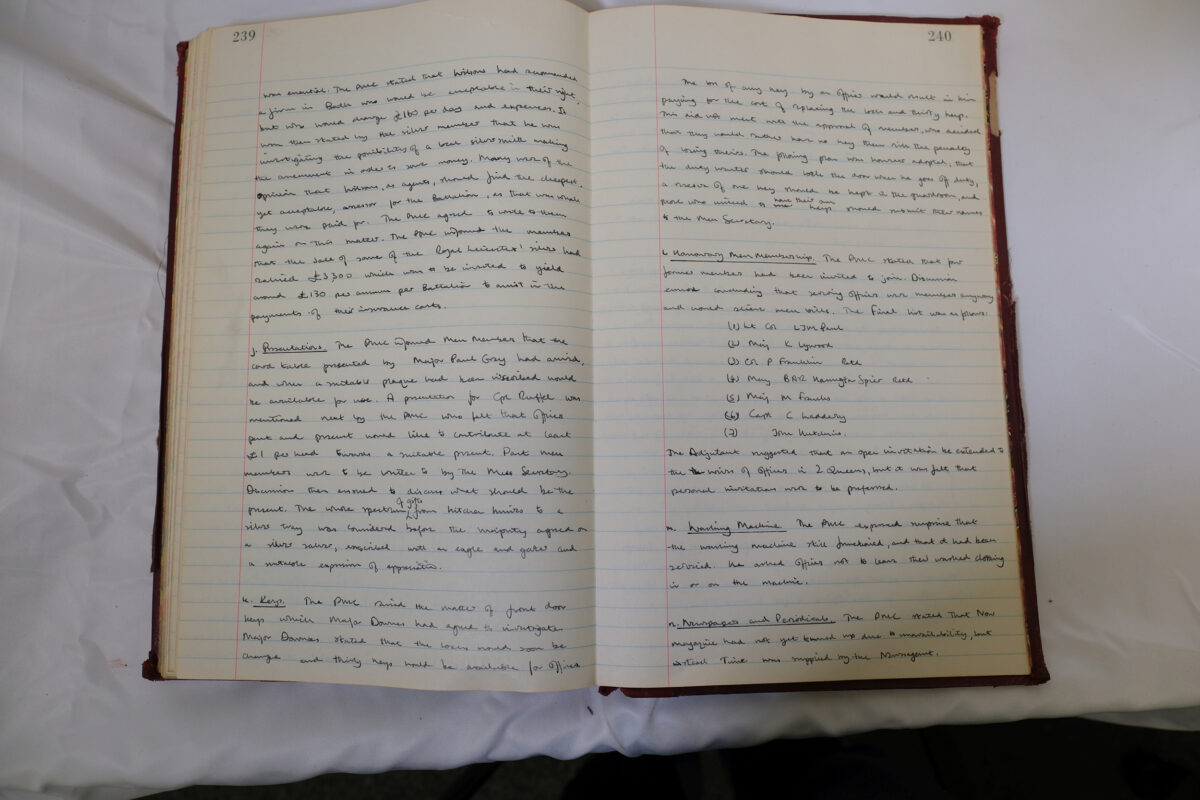 239
was essential. The PMC stated that Wilsons had recommended
a firm in Bath who would be acceptable in their right,
but who would charge £160 per day and expenses. It
was then stated by the silver member that he was
investigating the possibility of a local silversmith making
the assessment in order to save money. Many were of the
opinion that Wilsons, as agents, should find the cheapest,
yet acceptable, assessor for the Battalion, as that was what
they were paid for. The PMC agreed to write to them
again on this matter. The PMC informed the members
that the sale of some of the Royal Leicesters' silver had
raised £3,300 which was to be invested to yield
around £130 per annum per Battalion to assist in the
payments of their insurance costs.
j. Presentations. The PMC informed Mess Members that the
card table presented by Major Paul Gray had arrived,
and when a suitable plaque had been inscribed would
be available for use. A presentation for Cpl Ruffel was
mentioned next by the PMC who felt that Officers
past and present would like to contribute at least
£1 per head towards a suitable present. Past mess
members were to be written to by the Mess Secretary.
Discussion then ensued to discuss what should be the
present. The whole spectrum of gifts from kitchen knives to a
silver tray was considered before the majority agreed on
a silver salver, inscribed with an eagle and garter and
a suitable expression of appreciation.
k. Keys. The PMC raised the matter of front door
keys which Major Downes had agreed to investigate.
Major Downes stated that the locks would soon be
changed and thirty keys would be available for Officers.
240
The loss of any key by an Officer would result in him
paying for the cost of replacing the lock and thirty keys.
This did not meet with the approval of members, who decided
that they would rather have no key than risk the penalty
of losing theirs. The following plan was however adopted, that
the duty waiter should lock the door when he goes off duty,
a reserve of one key should be kept in the guardroom, and
those who wished to have their own keys should submit their names
to the Mess Secretary.
l. Honorary Mess Membership. The PMC stated that four
former members had been invited to join. Discussion
ensued concluding that serving officers were members anyway
and would receive mess bills. The final list was as follows:
(1) Lt Col LJM Paul
(2) Maj K Lywood
(3) Col P Franklin Retd
(4) Maj BAR Retd
(5) Maj M Franks
(6) Capt C
(7) John Hutchins.
The Adjutant suggested that an open invitation be extended to
the wives of Officers in 2 Queens, but it was felt that
personal invitations were to be preferred.
m. Washing Machine. The PMC expressed surprise that
the washing machine still functioned, and that it had been
serviced. He asked Officers not to leave their washed clothing
in or on the machine.
n. Newspapers and Periodicals. The PMC stated that Now
magazine had not yet turned up due to unavailability, but
instead Time was supplied by the Newsagent.